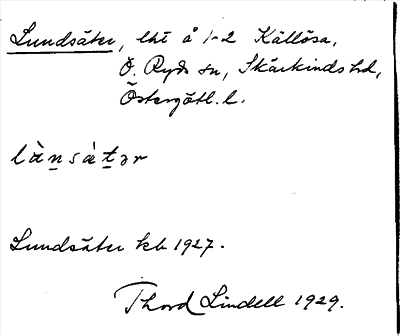 Lundsäter, lht å 1-2 Källösa,
Ö. Ryds sn, Skärkinds hd,
Östergötl. l.
là̀n̲sàt̲ər
Lundsäter kb 1927.
Thord Lindell 1929.